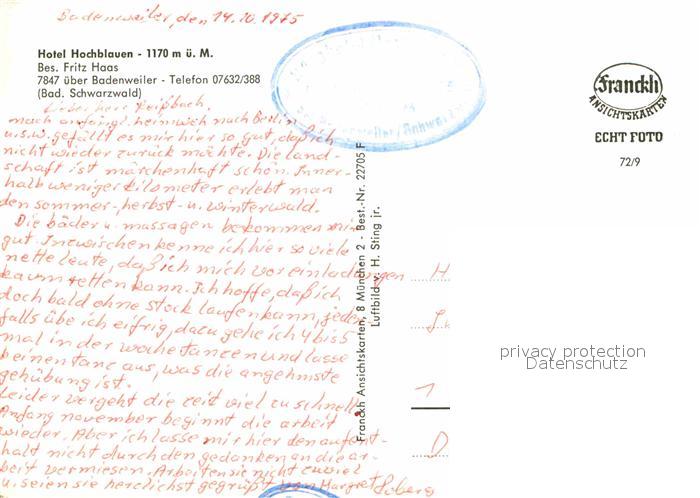 Badenweiler, den 14.10.1975
Hotel Hochblauen - 1170 m ü. M.
Bes. Fritz Haas
7847 über Badenweiler - Telefon 07632/388
(Bad. Schwarzwald)
Lieber herr Reißbach,
nach anfängl. heimweh nach Berlin
u.s.w. gefällt es mir hier so gut, daß ich
nicht wieder zurück möchte. Die land-
schaft ist märchenhaft schön. Inner-
halb weniger kilometer erlebt man
den sommer-, herbst- u. winterwald.
Die bäder u. massagen bekommen mir
gut. Inzwischen kenne ich hier so viele
nette leute, daß ich mich vor einladungen
kaum retten kann. Ich hoffe, daß ich
doch bald ohne stock laufen kann, jeden-
falls übe ich eifrig, dazu gehe ich 4 bis 5
mal in der woche tanzen und lasse
keinen tanz aus, was die angenehmste
gehübung ist.
Leider vergeht die zeit viel zu schnell.
Anfang november beginnt die arbeit
wieder. Aber ich lasse mir hier den aufent-
halt nicht durch den gedanken an die ar-
beit vermiesen. Arbeiten sie nicht zuviel
u. seien sie herzlichst gegrüßt von Margret
Franckh Ansichtskarten, 8 München 2 - Best.-Nr. 22705 F
Luftbild v. H. Sting jr.
Franckh
ANSICHTSKARTEN
ECHT FOTO
72/9
H
L
1
D
privacy protection
Datenschutz